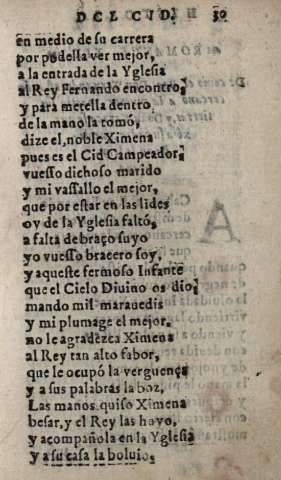 DEL CID. 30
en medio de su carrera
por podella ver mejor,
a la entrada de la Yglesia
al Rey Fernando encontro,
y para metella dentro
de la mano la tomó,
dize el, noble Ximena
pues es el Cid Campeador,
vuesso dichoso marido
y mi vassallo el mejor,
que por estar en las lides
oy de la Yglesia faltó,
a falta de braço suyo
yo vuesso bracero soy,
y aqueste fermoso Infante
que el Cielo Diuino os dio,
mando mil marauedis
y mi plumage el mejor,
no le agradezca Ximena
al Rey tan alto fabor,
que le ocupó la verguença
y a sus palabras la boz,
Las manos quiso Ximena
besar, y el Rey las huyo,
y acompañola en la Yglesia
y a su casa la boluio.